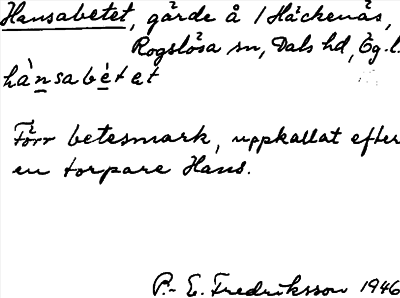 Hansabetet, gärde å 1 Häckenäs,
Rogslösa sn, Dals hd, Ög. l.
hànsabétet
Förr betesmark, uppkallat efter
en torpare Hans.
P.-E. Fredriksson 1946